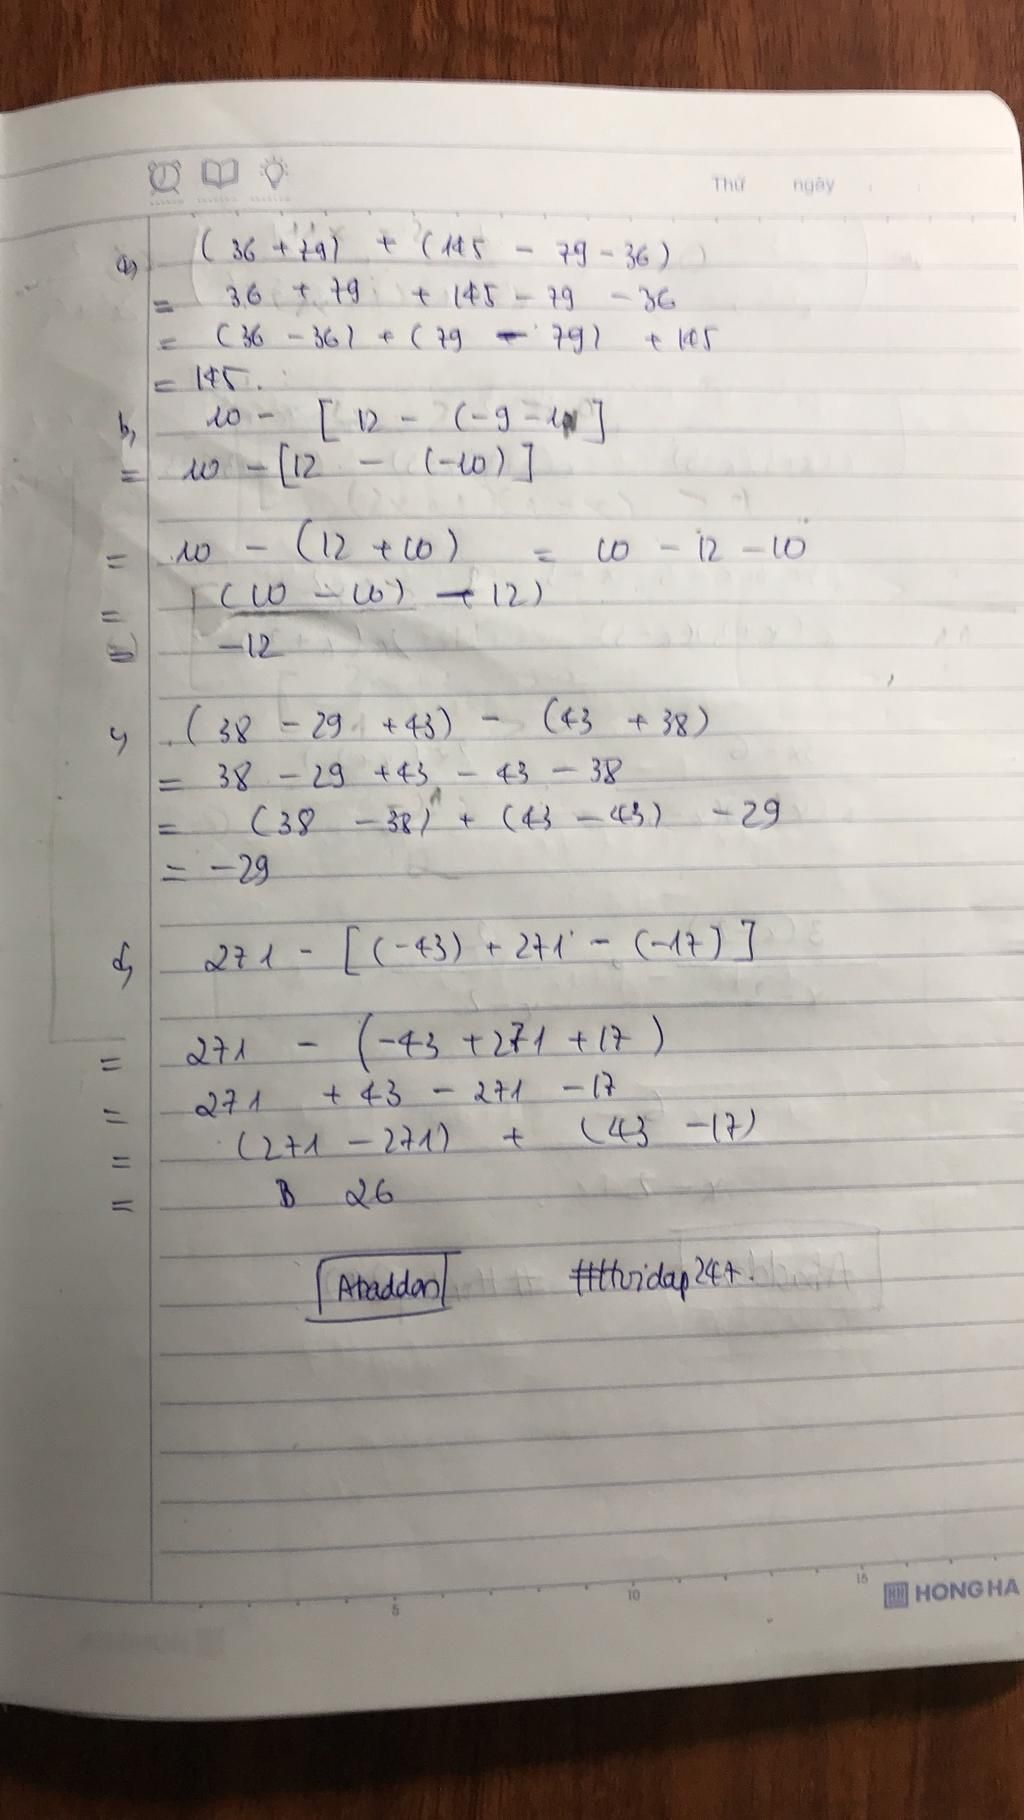 Thứ ngày
a, (36 + 79) + (145 - 79 - 36)
= 36 + 79 + 145 - 79 - 36
= (36 - 36) + (79 - 79) + 145
= 145.
b, 10 - [12 - (-9 - 1)]
= 10 - [12 - (-10)]
= 10 - (12 + 10) = 10 - 12 - 10
= (10 - 10) - 12)
= -12
c, (38 - 29 + 43) - (43 + 38)
= 38 - 29 + 43 - 43 - 38
= (38 - 38) + (43 - 43) - 29
= -29
d, 271 - [(-43) + 271 - (-17)]
= 271 - (-43 + 271 + 17)
= 271 + 43 - 271 - 17
= (271 - 271) + (43 - 17)
= 26
Abaddon #Hoidap247.
5 10 15
HONG HA